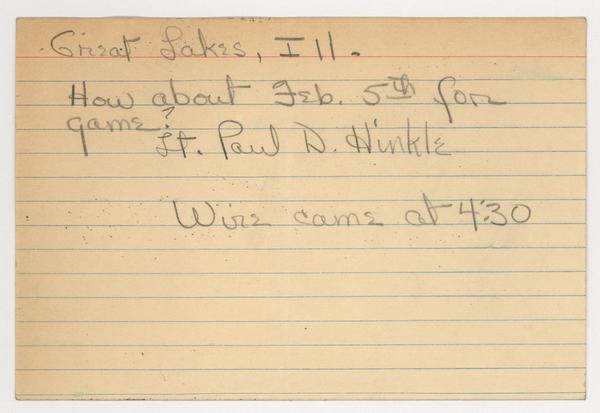 Great Lakes, Ill.
How about Feb. 5th for
game?
Lt. Paul D. Hinkle
Wire came at 4:30